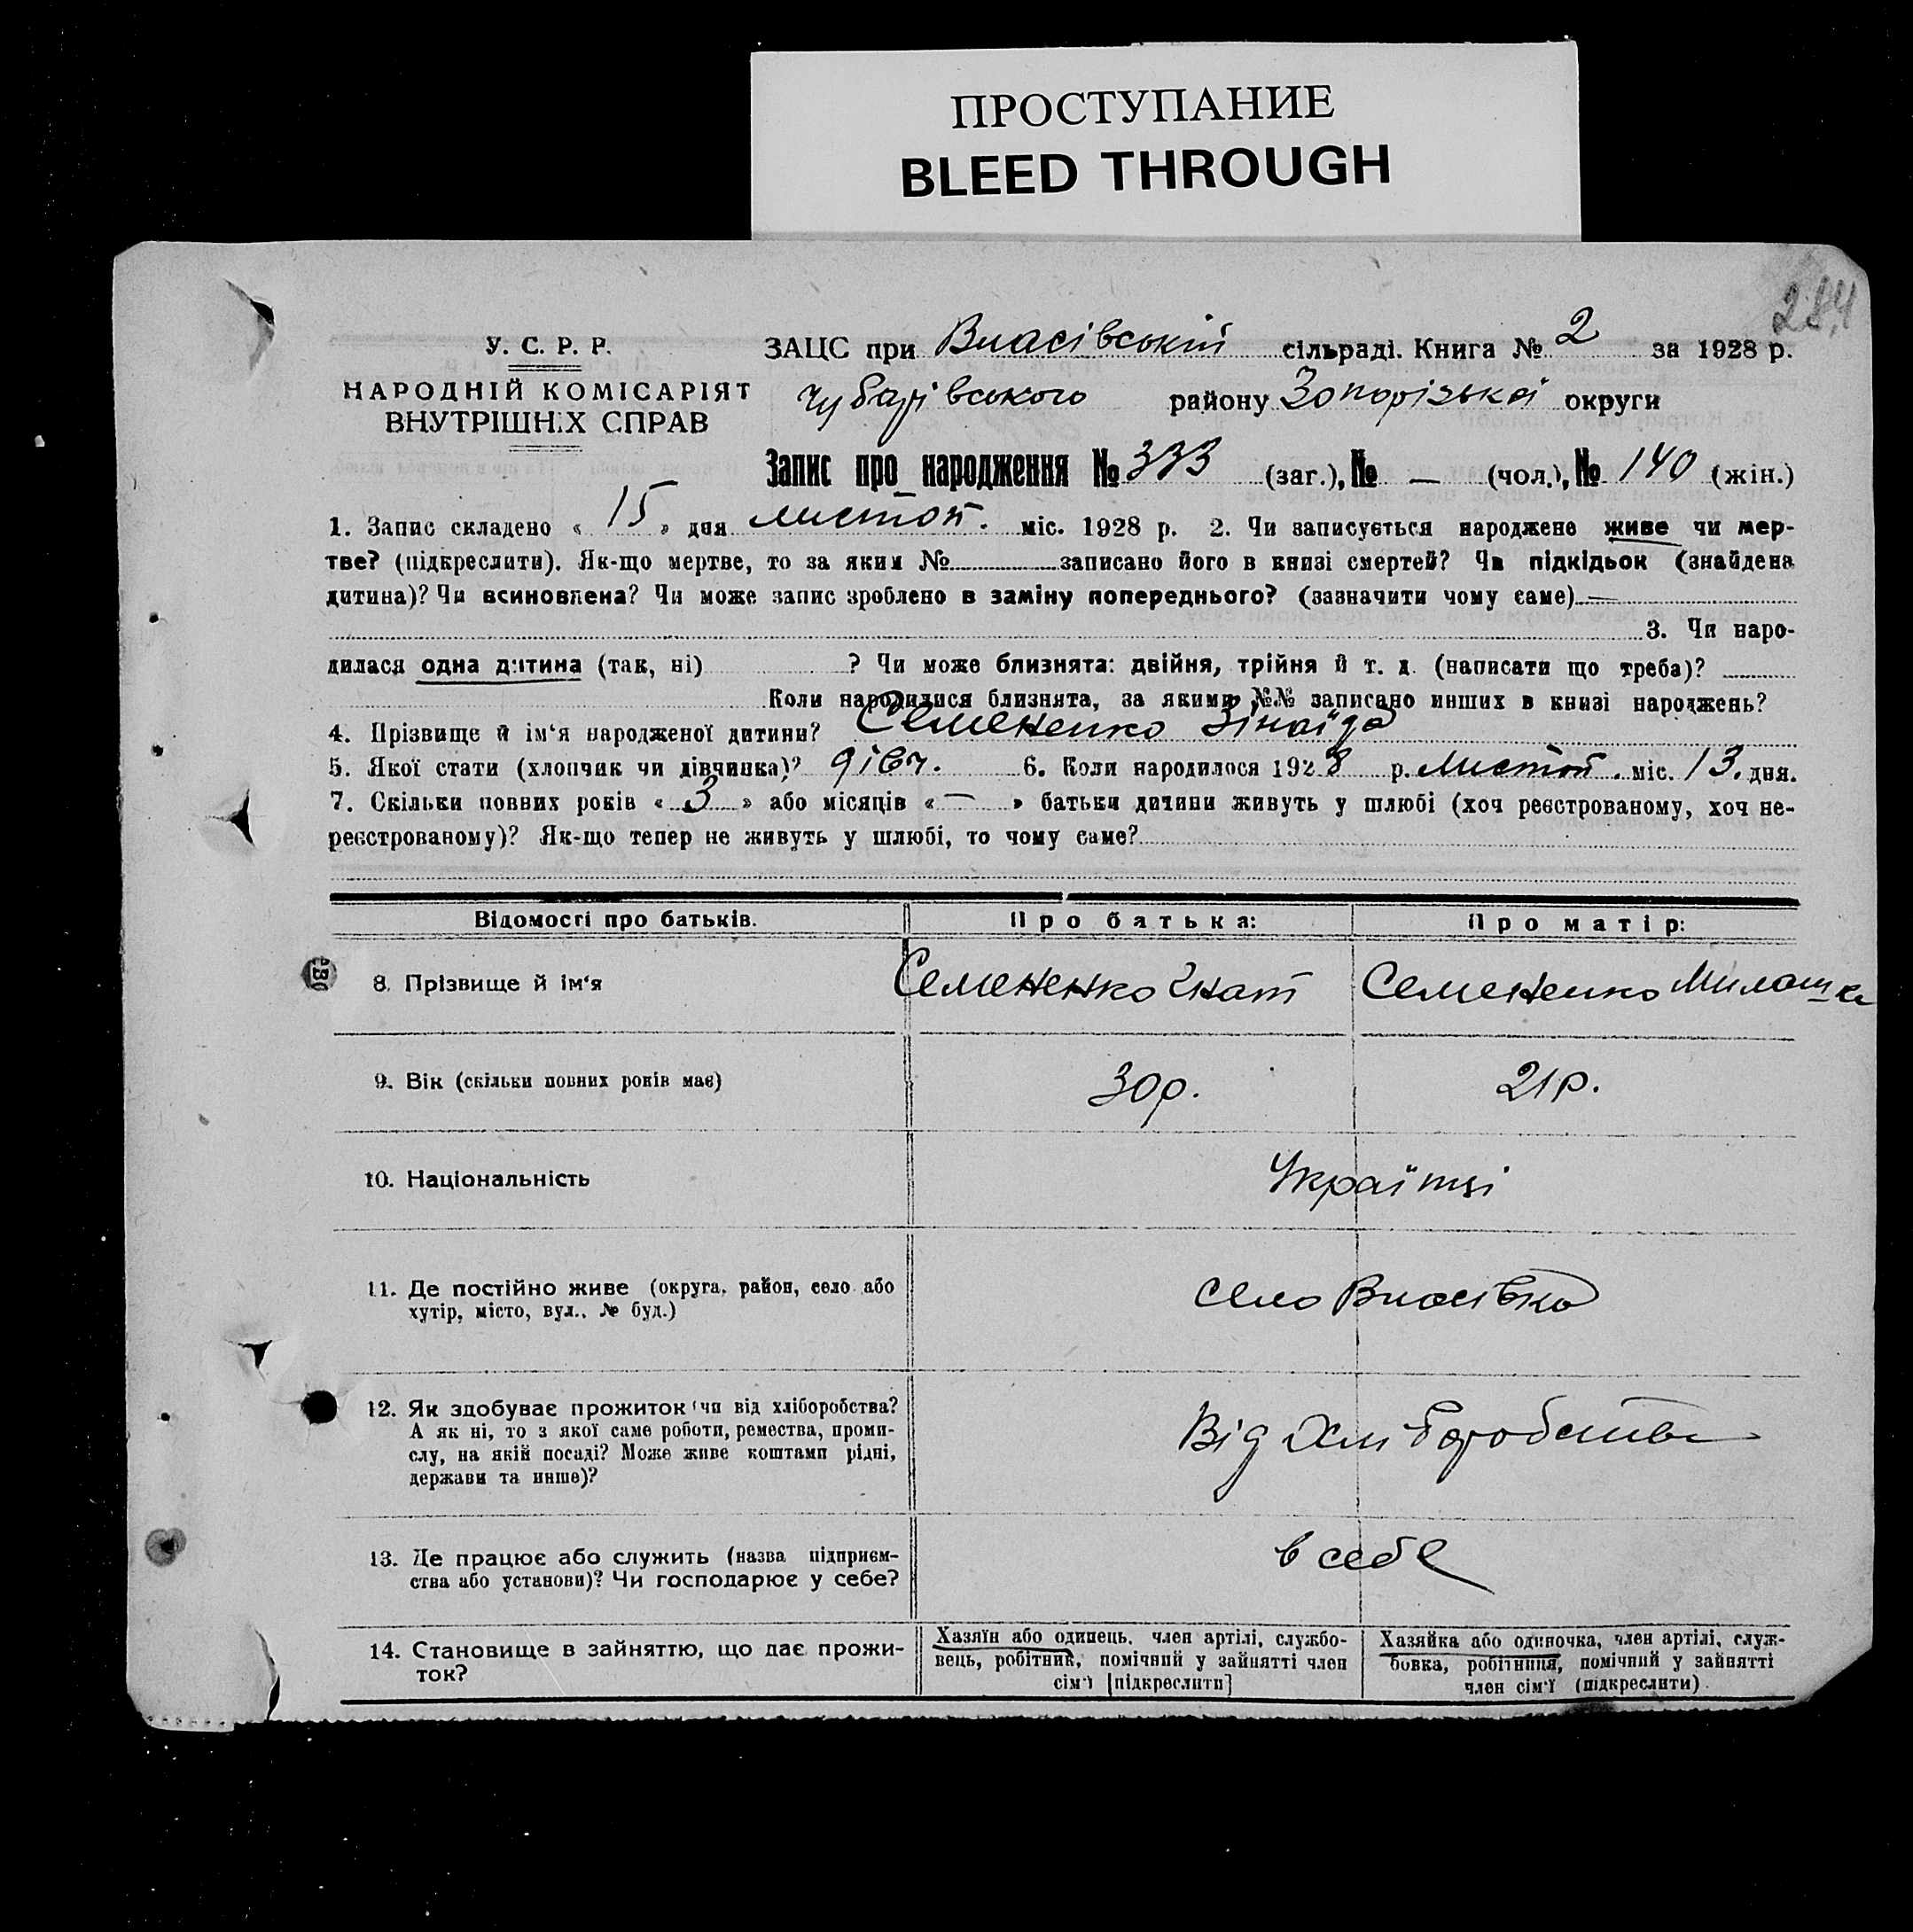 ПРОСТУПАНИЕ
BLEED THROUGH
284
У. С. Р. Р.
НАРОДНІЙ КОМІСАРІЯТ
ВНУТРІШНІХ СПРАВ
ЗАЦС при Власівській сільраді. Книга № 2 за 1928 р.
Чубарівського району Запорізької округи
Запис про народження № 333 (заг.), № — (чол.), № 140 (жін.)
1. Запис складено « 15 » дня листоп. міс. 1928 р. 2. Чи записується народжене живе чи мер-
тве? (підкреслити). Як-що мертве, то за яким № записано його в книзі смертей? Чи підкідьок (знайдена
дитина)? Чи всиновлена? Чи може запис зроблено в заміну попереднього? (зазначити чому саме) —
3. Чи наро-
дилася одна дитина (так, ні) ? Чи може близнята: двійня, трійня й т. д. (написати що треба)?
Коли народилися близнята, за якими №№ записано инших в книзі народжень?
4. Прізвище й ім'я народженої дитини? Семененко Зінаїда
5. Якої стати (хлопчик чи дівчинка)? дівч. 6. Коли народилося 1928 р. листоп. міс. 13. дня.
7. Скільки повних років « 3 » або місяців « — » батьки дитини живуть у шлюбі (хоч реєстрованому, хоч не-
реєстрованому)? Як-що тепер не живуть у шлюбі, то чому саме?
Відомості про батьків. Про батька: Про матір:
8. Прізвище й ім'я Семененко Гнат Семененко Милашка
9. Вік (скільки повних років має) 30 р. 21 р.
10. Національність Українці
11. Де постійно живе (округа, район, село або
хутір, місто, вул., № буд.)
село Власівка
12. Як здобуває прожиток (чи від хліборобства?
А як ні, то з якої саме роботи, ремества, проми-
слу, на якій посаді? Може живе коштами рідні,
держави та инше)?
Від Хліборобства
13. Де працює або служить (назва підприєм-
ства або установи)? Чи господарює у себе?
в себе
14. Становище в зайняттю, що дає прожи-
ток?
Хазяїн або одинець, член артілі, службо-
вець, робітник, помічний у зайнятті член
сім'ї [підкреслити]
Хазяйка або одиночка, член артілі, служ-
бовка, робітниця, помічний у зайнятті
член сім'ї (підкреслити).